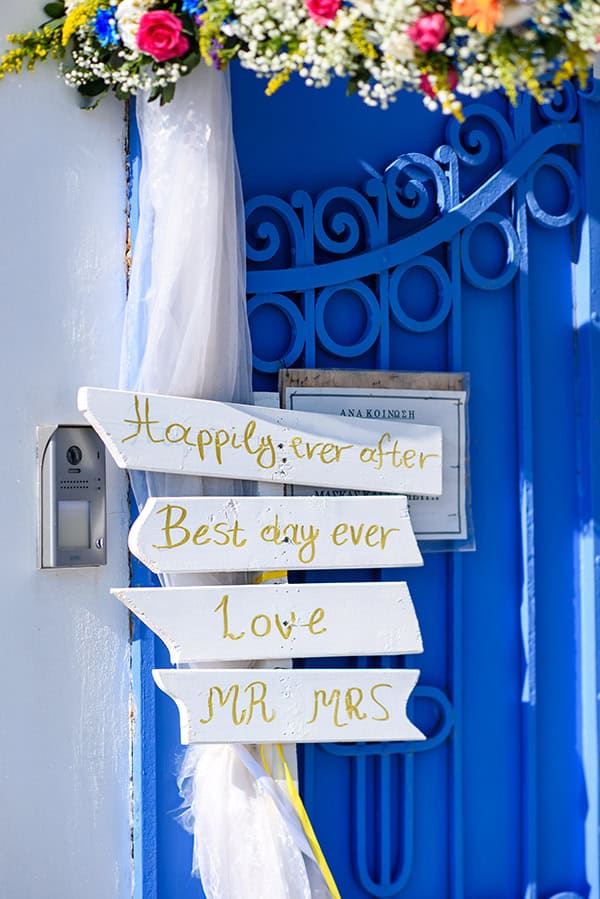 ΑΝΑΚΟΙΝΩΣΗ
Happily ever after
Best day ever
Love
MR MRS